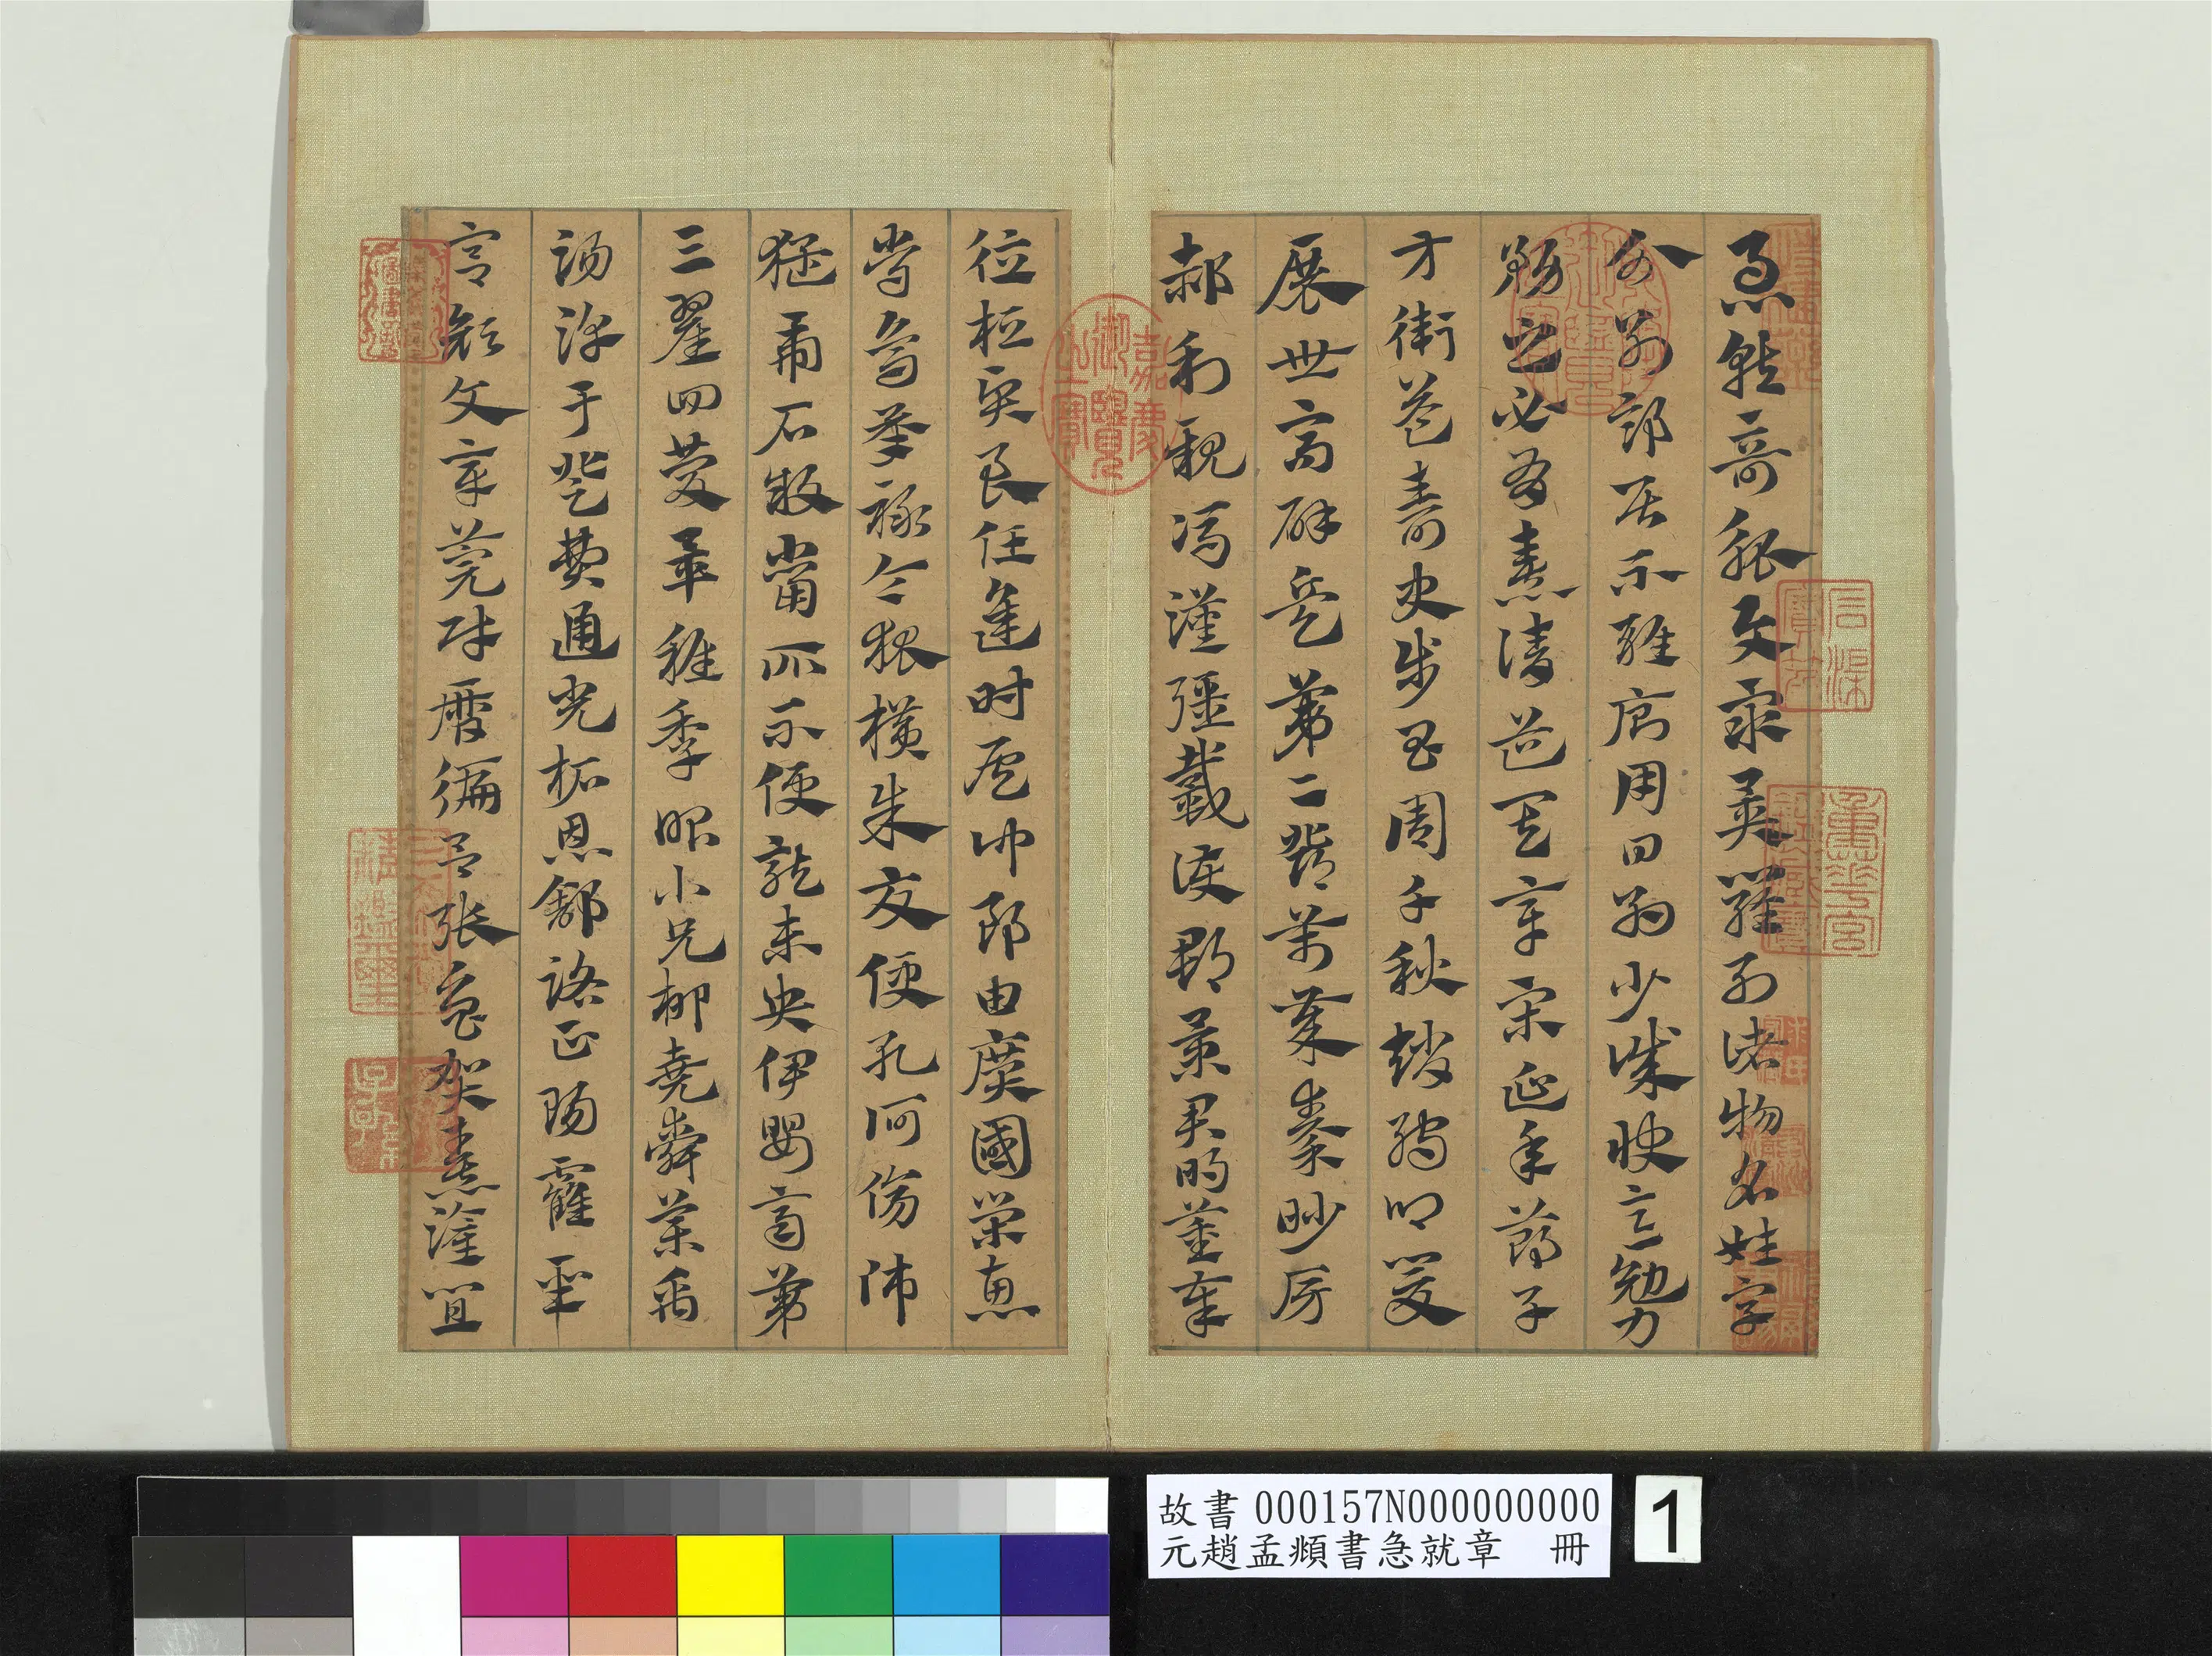 急就奇觚與衆異羅列諸物名姓字
分別部居不雜廁用日約少誠快意勉力
務之必有憙請道其章宋延年鄭子
方衛益壽史步昌周千秋趙孺卿爰
展世高辟兵第二鄧萬歲秦眇房
郝利親馮漢彊戴護郡景君明董奉
德桓賢良任逢時侯仲郎由廣國榮惠
常烏承祿令狐橫朱交便孔何傷師
猛虎石敢當所不便龍未央伊嬰齊第
三翟回慶畢稚季昭小兄柳堯舜藥禹
湯淳于登費通光柘恩舒路正陽霍聖
宮顏文章莞財曆徧呂張魯賀憙灌宜
石渠寶笈
重華宮鑑藏寶
乾隆鑑賞
嘉慶御覽之寶
三希堂精鑑璽
宜子孫
故書 000157N000000000
元趙孟頫書急就章 冊
1